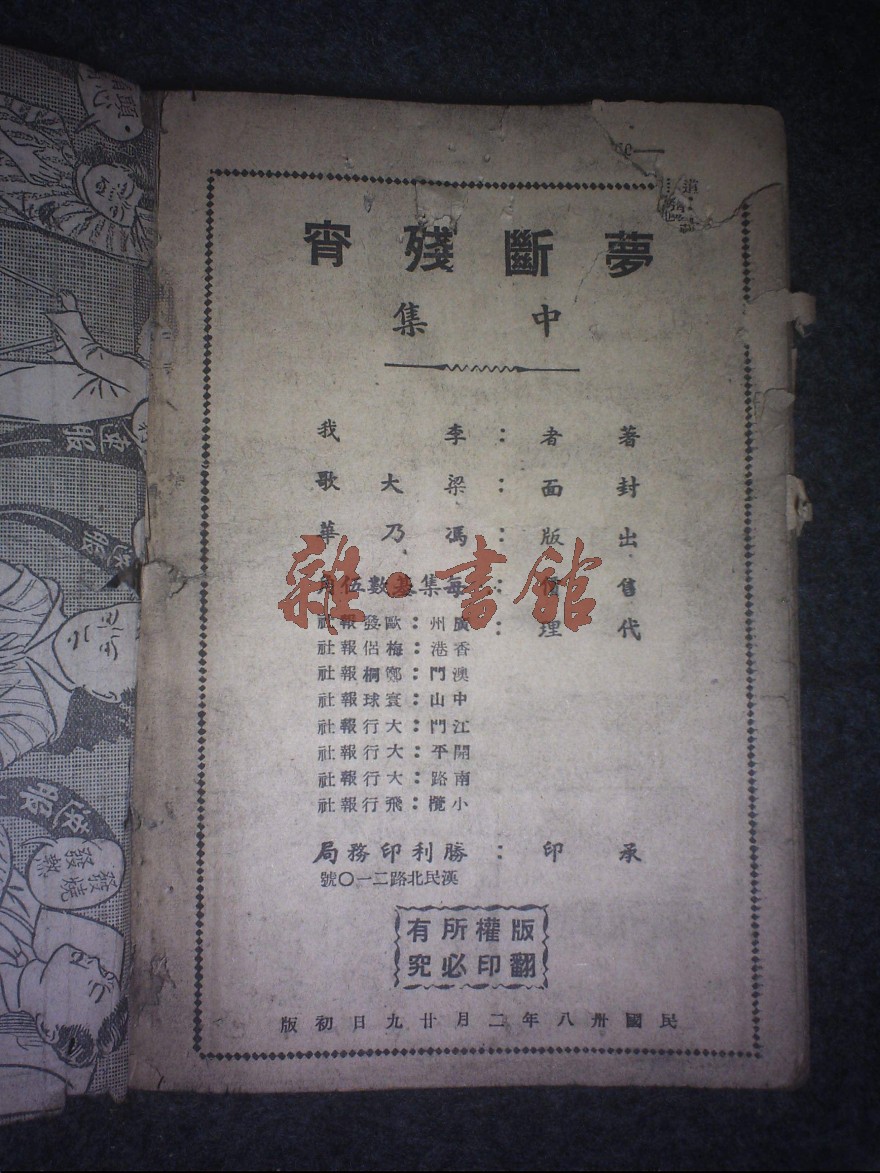 夢斷殘宵
中集
著者：李我
封面：梁大歌
出版：馮乃華
售價：每集基數伍角
代理：廣州：歐發報社
香港：梅侶報社
澳門：鄭桐報社
中山：寰球報社
江門：大行報社
開平：大行報社
南路：大行報社
小欖：飛行報社
承印：勝利印務局
漢民北路二一〇號
版權所有
翻印必究
民國卅八年二月廿九日初版
雜·書館
發燒
發熱